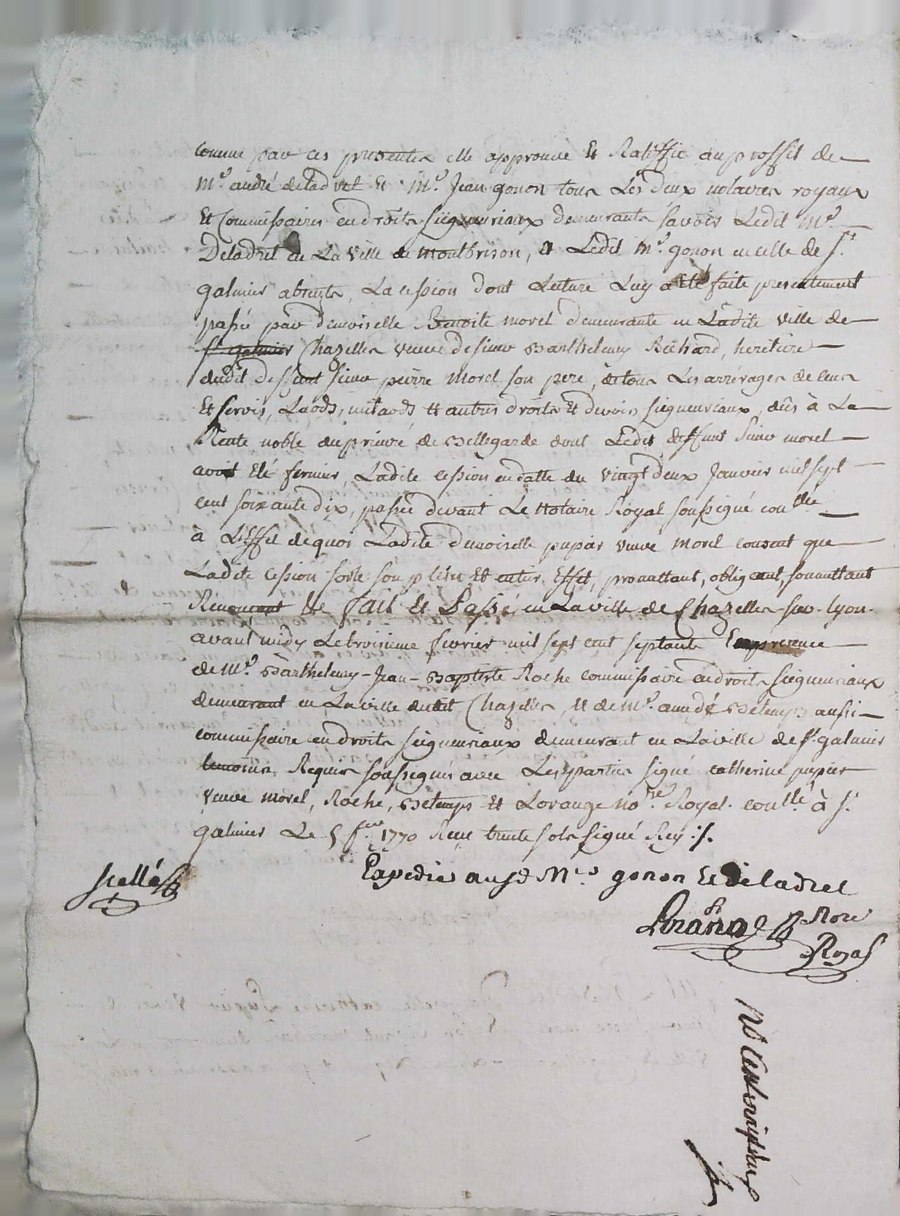 comme par ces presentes elle approuve et Ratiffie au proffit de
Me. andré deladret et Me. Jean gonon tous Les deux notaires royaux
et Commissaires en droits seigneuriaux demeurants savoir Ledit Me.
Deladret en La ville de montbrison, et Ledit Me. gonon en celle de St.
galmier absents, La cession dont Lecture Luy a eté faite presentement
passée par demoiselle Benoite morel demeurante en Ladite ville de
St. galmier Chazelles veuve de sieur Barthelemy Richard, heritiere
dudit deffunt sieur pierre morel son pere, de tous Les arrérages de cens
et servis, Laods, milaods et autres droits et devoirs seigneuriaux, dûs à La
Rente noble du prieuré de Bellegarde dont Ledit deffunt sieur morel
avoit eté fermier, Ladite cession en datte du vingt deux Janvier mil sept
cent soixante dix, passée devant Le Notaire Royal soussigné con.llé
à L'effet de quoi Ladite demoiselle pupier veuve morel consent que
Ladite cession sorte son plein et entier Effet, promettant, obligeant, soumettant
Renonçant &c. fait et Passé en La ville de Chazelles-sur-lyon
avant midy Le troisieme fevrier mil sept cent septante En presence
de Me. Barthelemy-Jean-Baptiste Roche commissaire en droits seigneuriaux
demeurant en La ville dudit Chazelles, et de Me. amedé Betemps aussi
commissaire en droits seigneuriaux demeurant en La ville de St. galmier
temoins Requis soussignés avec Les parties signé catherine pupier
veuve morel, Roche, Betemps et Lorange nore. Royal. con.llé à St.
galmier Le 5 fer 1770 Reçu trente sols signé Rey ./.
Expedié ausd. Mes gonon et deladret
scellé
Nore
Royal